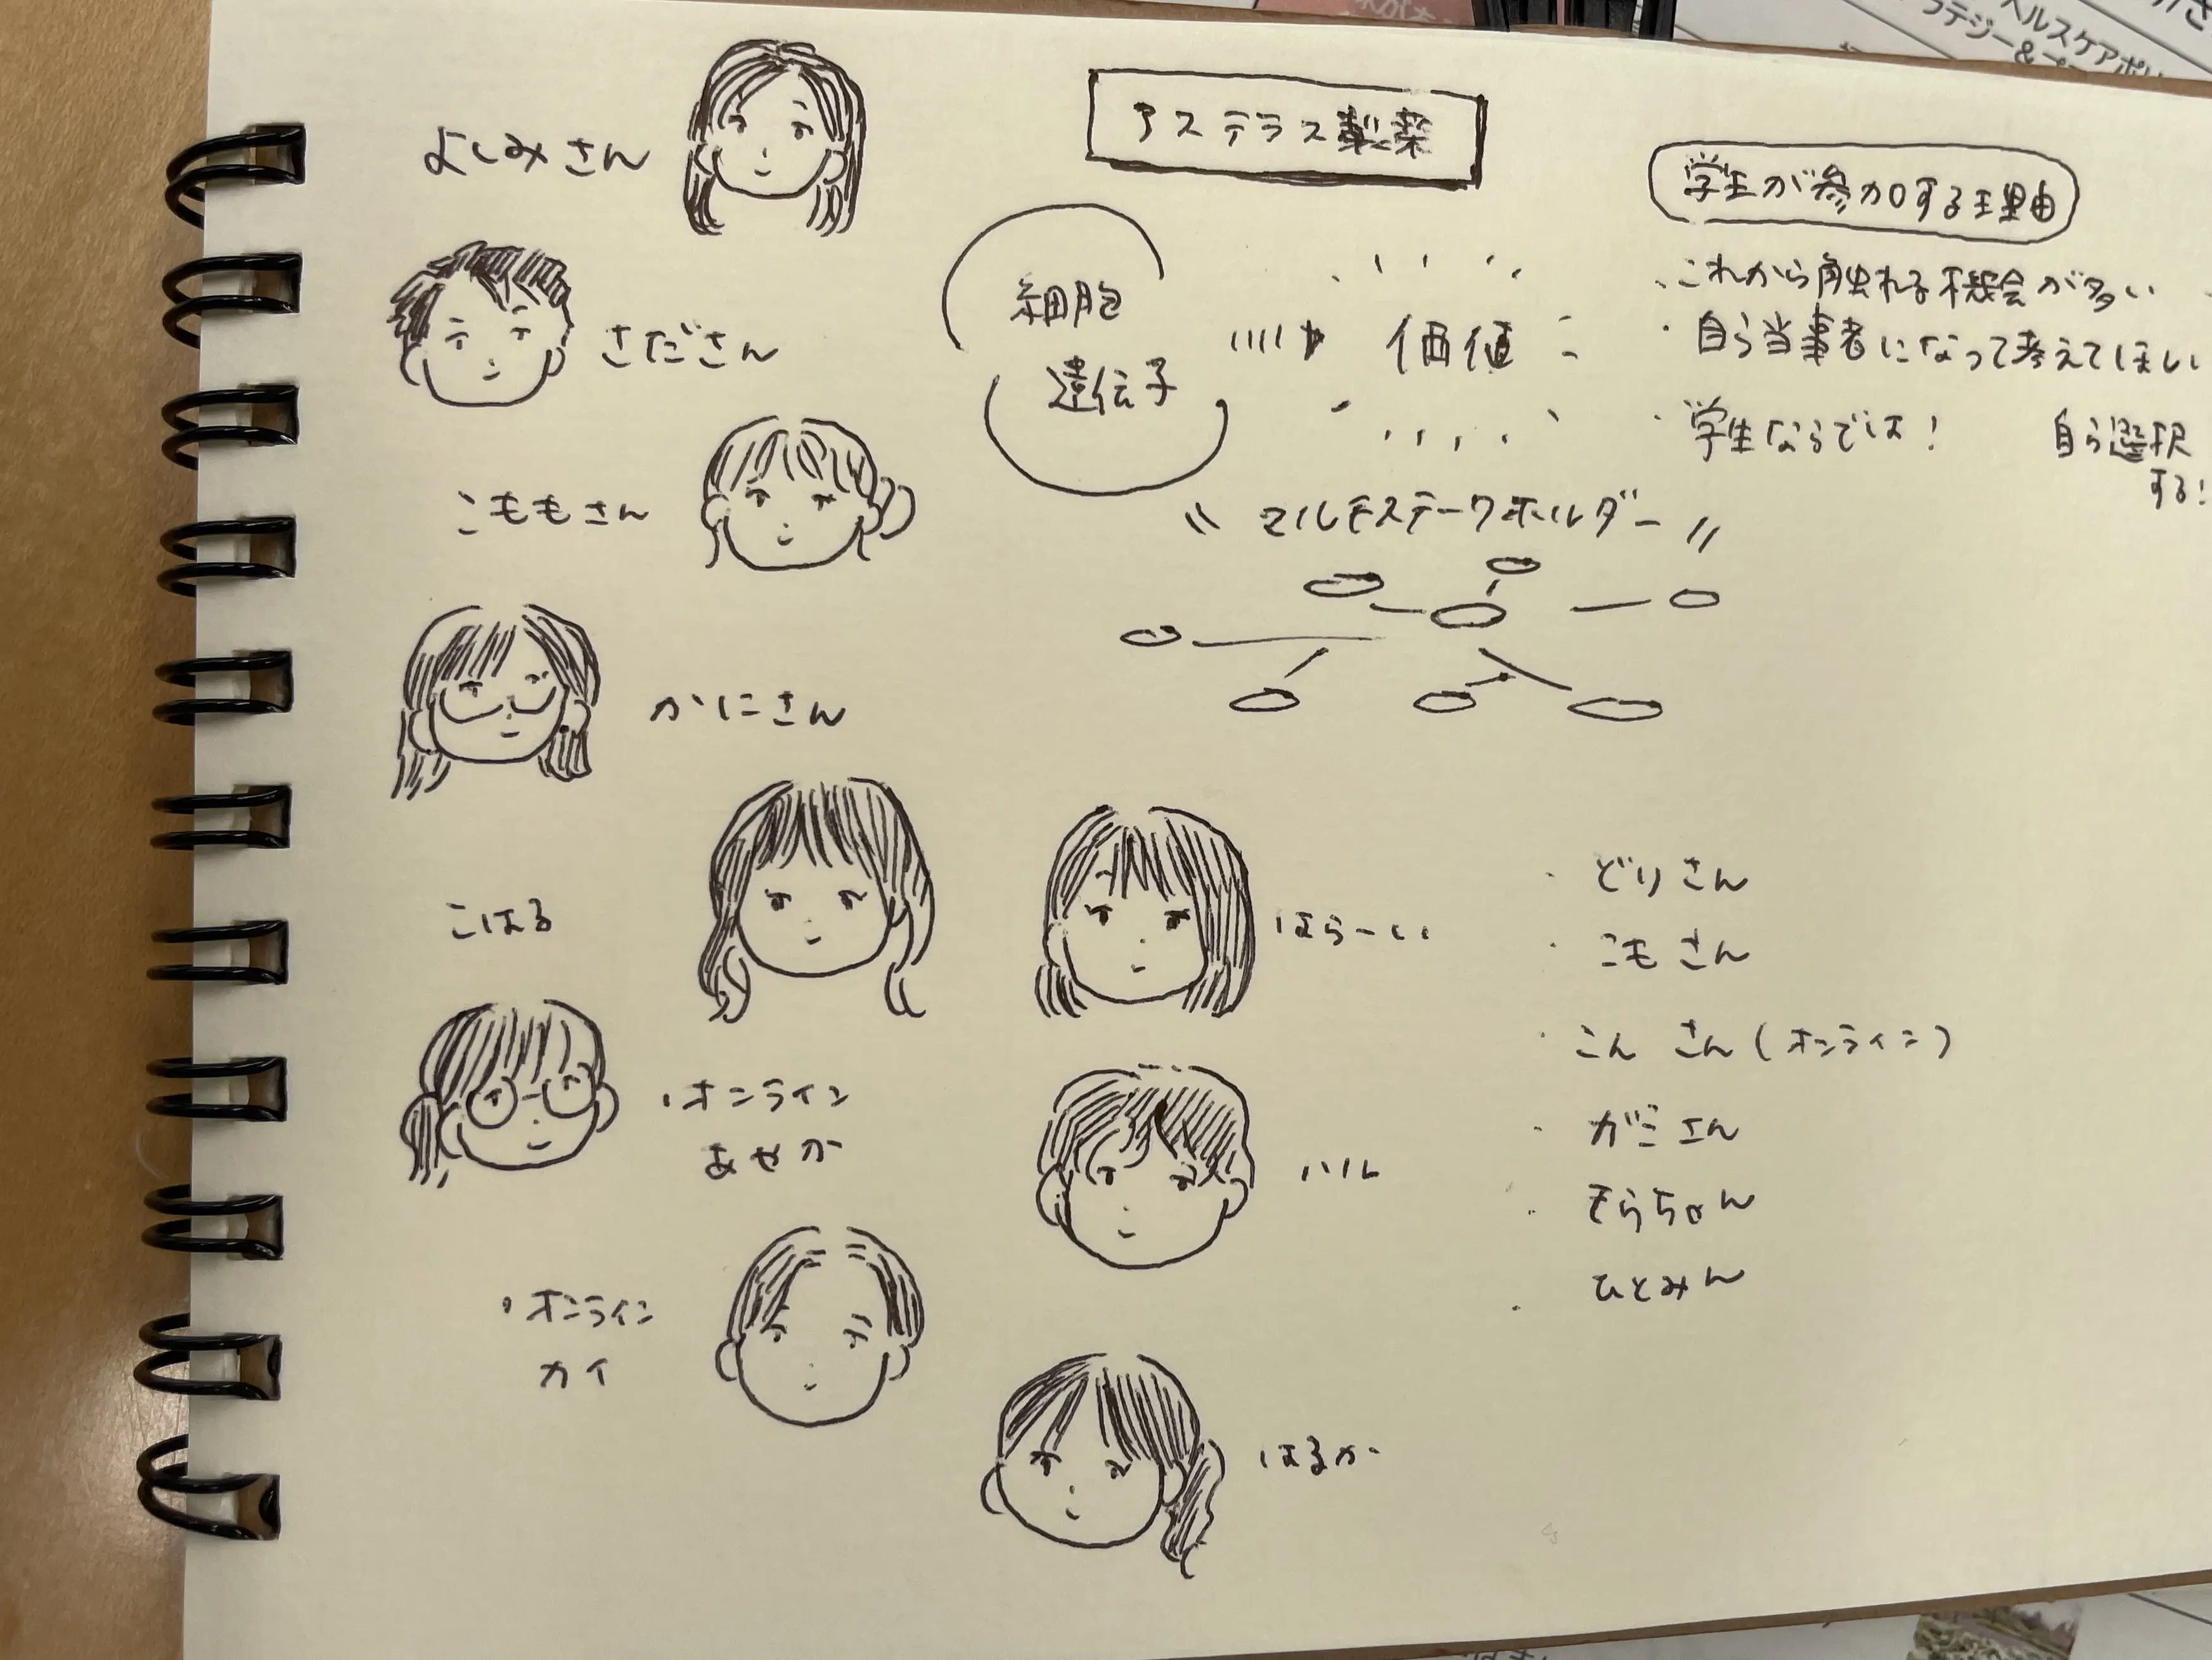 よしみさん
さださん
こももさん
かにさん
こはる
・オンライン
あせか
・オンライン
カイ
アステラス製薬
細胞
遺伝子
価値
〝マルチステークホルダー〟
はらーい
ハル
はるか
学生が参加する理由
・これから触れる機会が多い
・自ら当事者になって考えてほしい
・学生ならでは!
自ら選択
する!
・どりさん
・こもさん
・こんさん(オンライン)
・ガミさん
・そらちゃん
・ひとみん
ヘルスケアポリ
ラテジー&プ